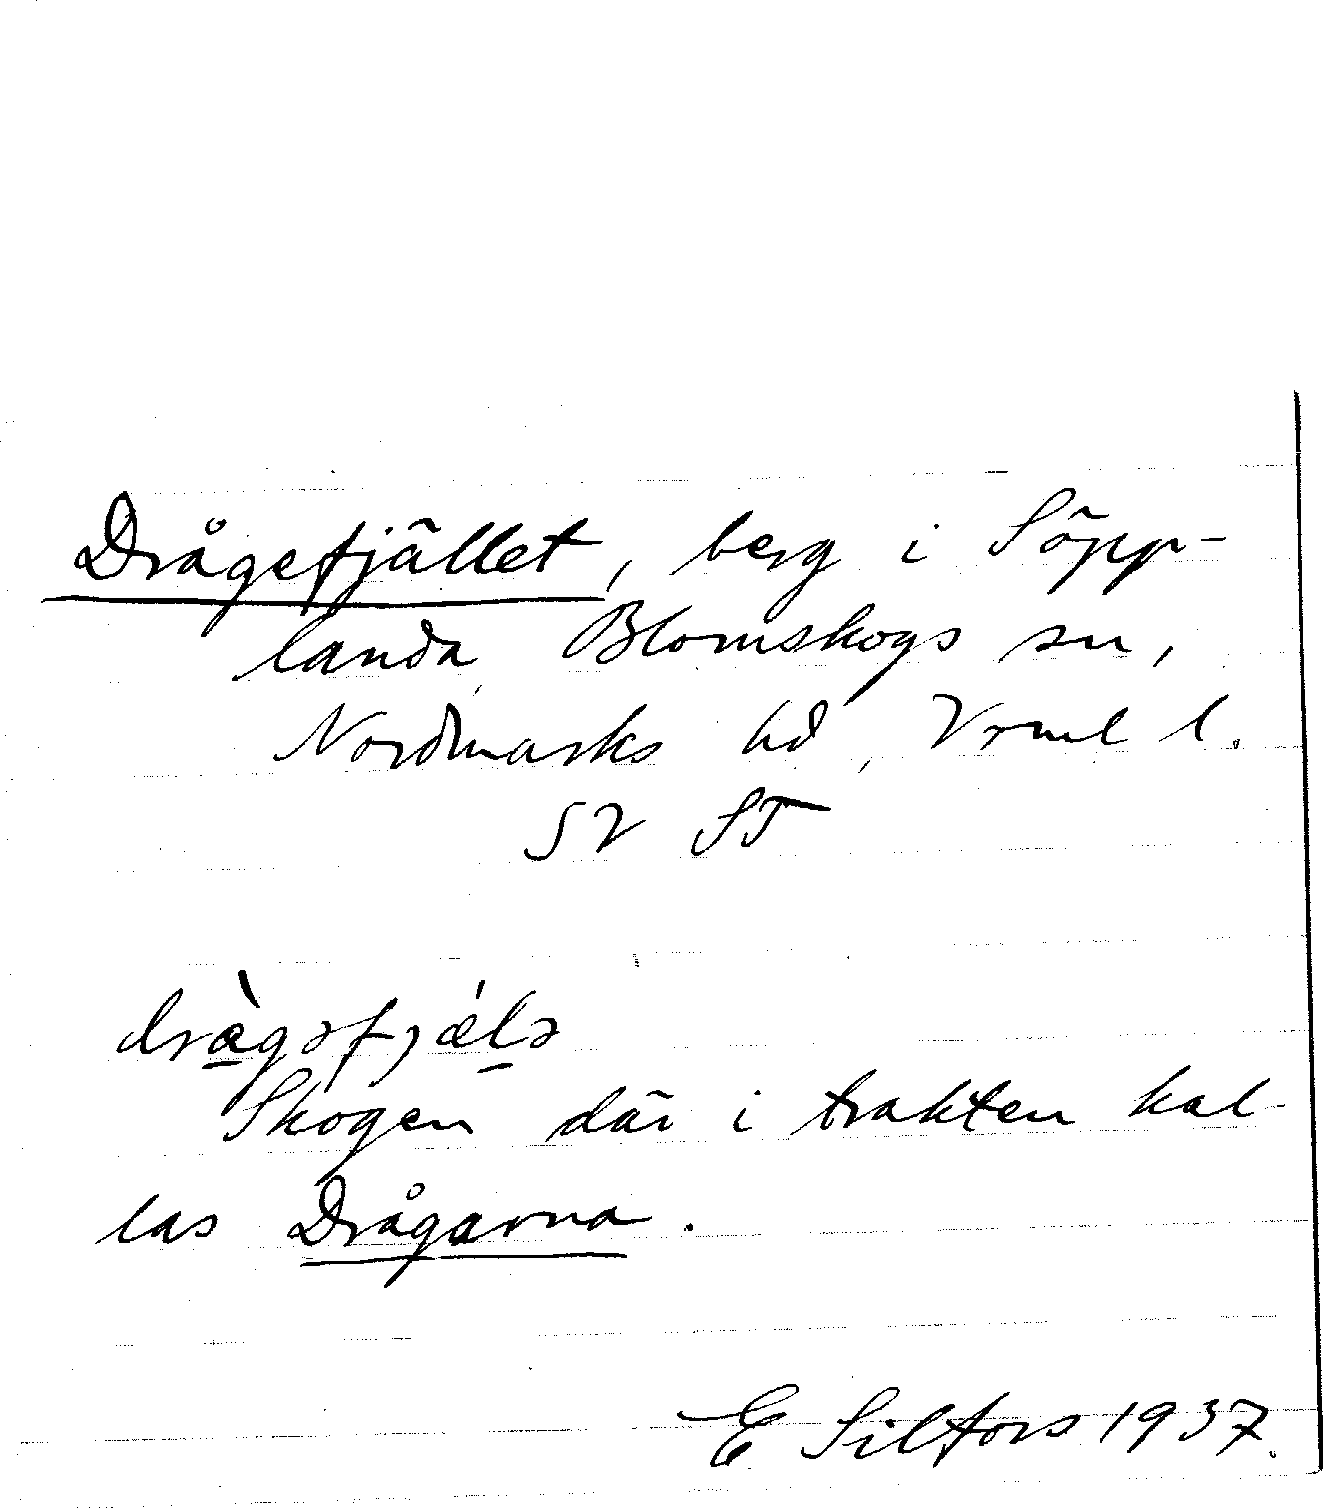 Drågefjället, berg i Söpp-
landa Blomskogs sn,
Nordmarks hd, Vrml l.
SV ST
drågəfjælə
Skogen där i trakten kal-
las Drågarna.
E Silfors 1937.